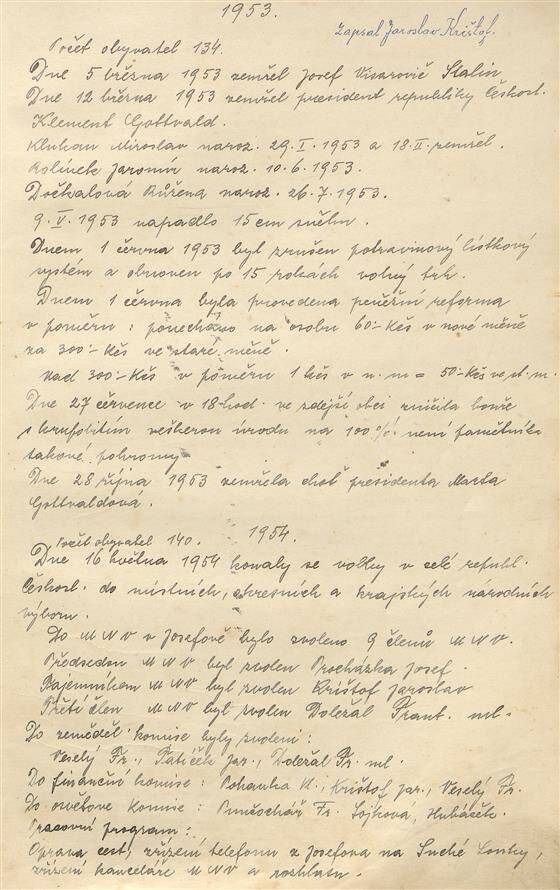 1953.
zapsal Jaroslav Krištof.
Počet obyvatel 134.
Dne 5 března 1953 zemřel Josef Visarovič Stalin.
Dne 12 března 1953 zemřel president republiky Českosl.
Klement Gottvald.
Klukan Miroslav naroz. 29.I.1953 a 18.II. zemřel.
Kolínek Jaromír naroz. 10.6.1953.
Dočkalová Růžena naroz. 26.7.1953.
9.V.1953 napadlo 15 cm sněhu.
Dnem 1 června 1953 byl zrušen potravinový lístkový
systém a obnoven po 15 rokách volný trh.
Dnem 1 června byla provedena peněžní reforma
v poměru: ponecháno na osobu 60:- Kčs v nové měně
za 300:- Kčs ve staré měně.
nad 300:- Kčs v poměru 1 kčs v n. m = 50:- Kčs ve st. m.
Dne 27 července v 18 hod. ve zdejší obci zničila bouře
s krupobitím veškerou úrodu na 100%. není pamětníka
takové pohromy
Dne 28 října 1953 zemřela choť presidenta Marta
Gottvaldová.
1954.
Počet obyvatel 140.
Dne 16 května 1954 konaly se volby v celé republ.
Českosl. do místních, okresních a krajských národních
výboru.
Do MNV v Josefově bylo zvoleno 9 členů MNV.
Předsedou MNV byl zvolen Procházka Josef.
Tajemníkem MNV byl zvolen Krištof Jaroslav
Třetí člen MNV byl zvolen Doležal Frant. ml.
Do zeměděl. komise byly zvoleni:
Veselý Fr., Jar., Doležal Fr. ml.
Do finanční komise: Pohanka, Krištof Jar., Veselý Fr.
Do osvětove komise: Punčochář Fr. Sojková, Hubáček.
Pracovní program:
Oprava cest, zřízení telefonu z Josefova na Suché Louky,
zřízení kanceláře MNV a rozhlasu.